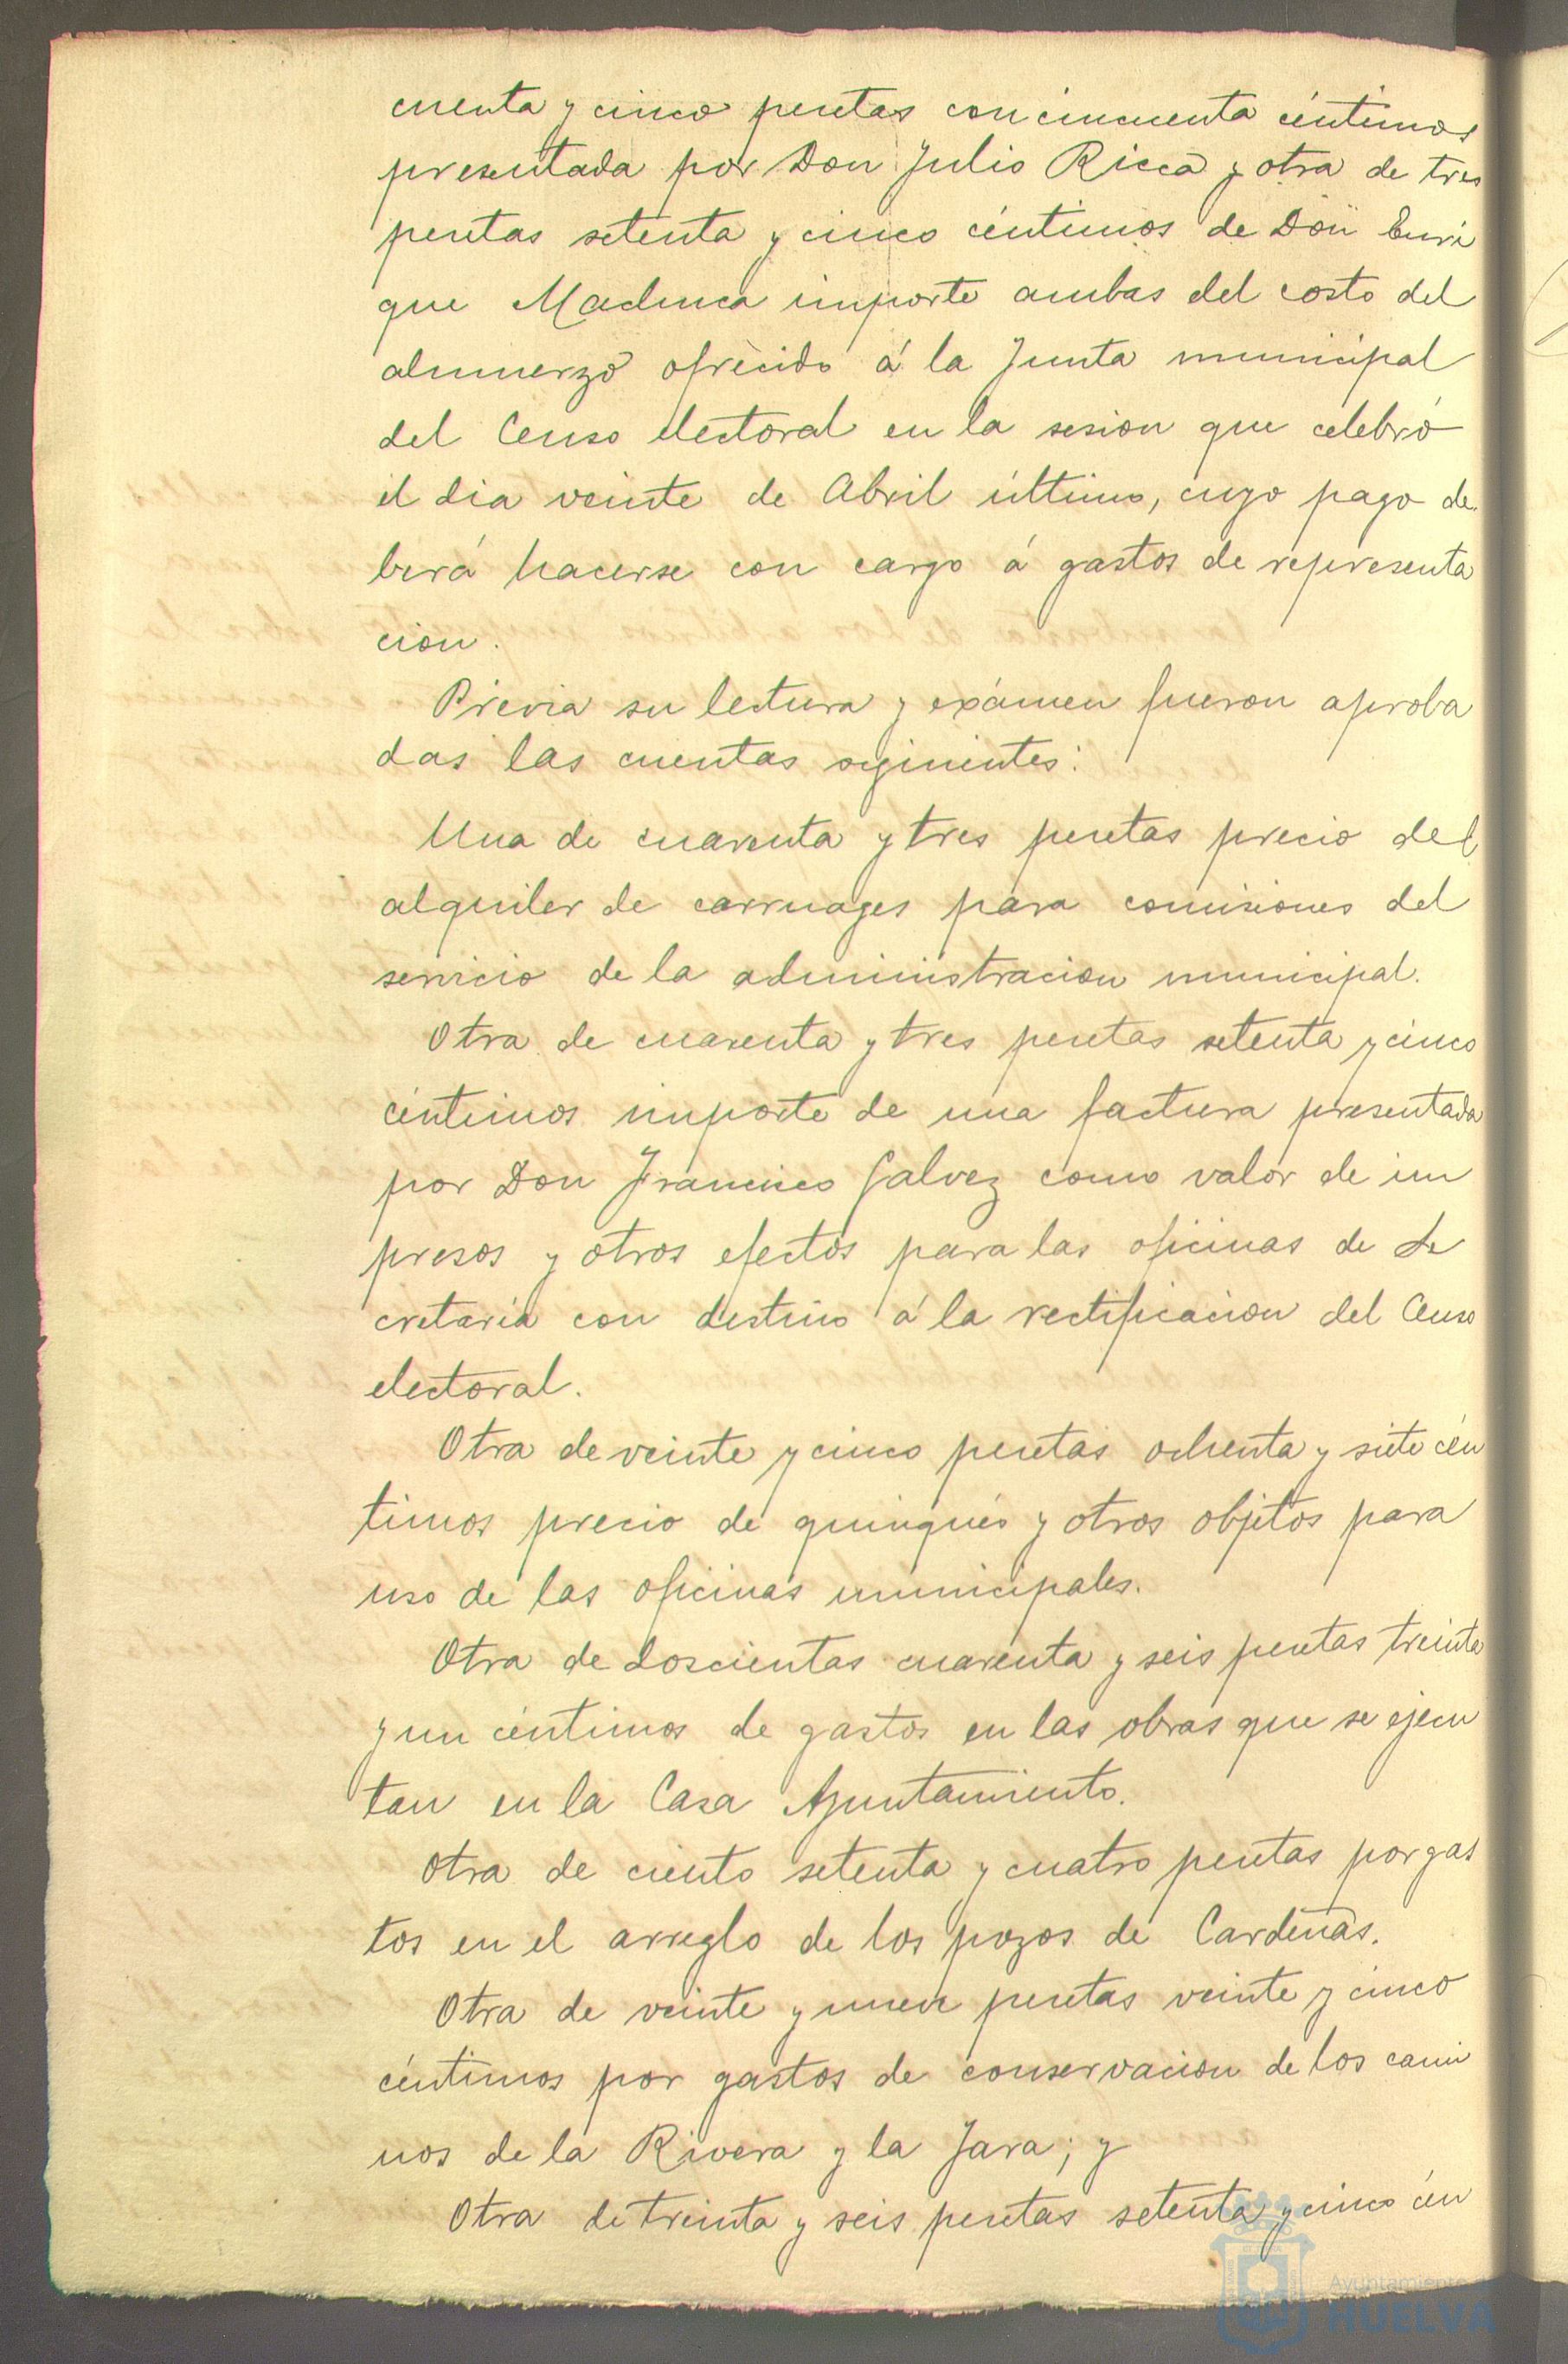 cuenta y cinco pesetas con cincuenta céntimos
presentada por Don Julio Ricca y otra de tres
pesetas setenta y cinco céntimos de Don Enri
que Machuca importe ambas del costo del
almuerzo ofrecido á la Junta municipal
del Censo electoral en la sesion que celebró
el dia veinte de Abril último, cuyo pago de
berá hacerse con cargo á gastos de representa
cion.
Previa su lectura y exámen fueron aproba
das las cuentas siguientes:
Una de cuarenta y tres pesetas precio del
alquiler de carruages para comisiones del
servicio de la administracion municipal.
Otra de cuarenta y tres pesetas setenta y cinco
céntimos importe de una factura presentada
por Don Francisco Galvez como valor de im
presos y otros efectos para las oficinas de Se
cretaría con destino á la rectificacion del Censo
electoral.
Otra de veinte y cinco pesetas ochenta y siete cén
timos precio de quinqués y otros objetos para
uso de las oficinas municipales.
Otra de doscientas cuarenta y seis pesetas treinta
y un céntimos de gastos en las obras que se ejecu
tan en la Casa Ayuntamiento.
Otra de ciento setenta y cuatro pesetas por gas
tos en el arreglo de los pozos de Cardeñas.
Otra de veinte y pesetas veinte y cinco
céntimos por gastos de conservacion de los cami
nos de la Rivera y la Jara; y
Otra de treinta y seis pesetas setenta y cinco cén
Ayuntamiento
HUELVA